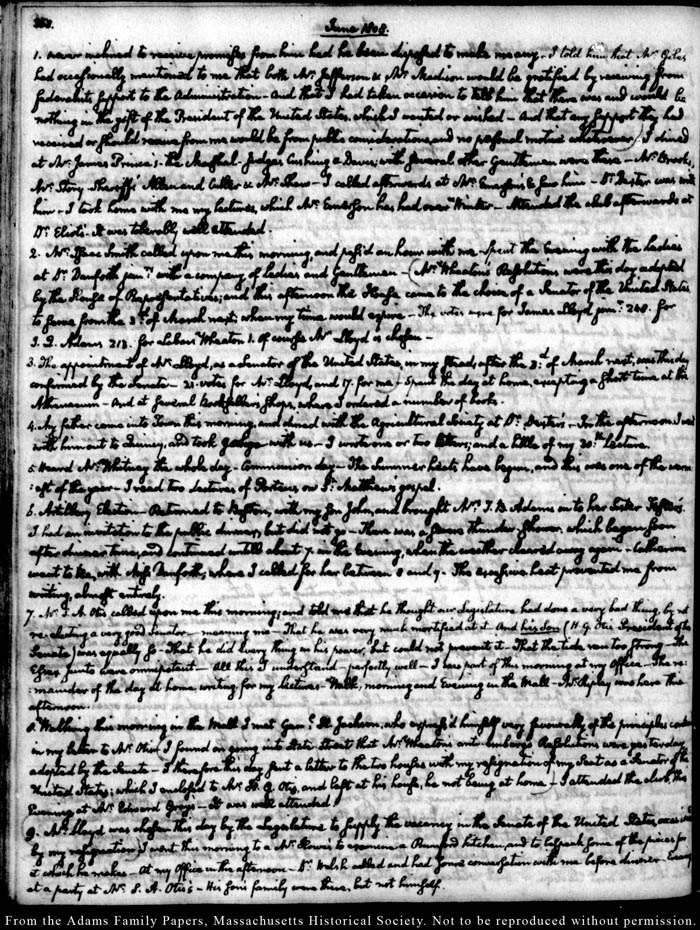 353.
June 1808.
1. never inclined to receive promises from him had he been disposed to make me any. I told him that Mr. Giles
had occasionally mentioned to me that both Mr. Jefferson & Mr. Madison would be gratified by receiving from
federalists support to the Administration - And that I had taken occasion to tell him that there was and would be
nothing in the gift of the President of the United States, which I wanted or wished - And that any support they had
received or should receive from me would be from public considerations, and no personal motive whatsoever) I dined
at Mr. James Prince's. the Marshal. Judges Cushing & Davis; with several other Gentlemen were there - Mr. Brooks,
Mr. Story Sheriffs Allen and Cutler & Mr. Shaw - I called afterwards at Mr. Emerson's & saw him - Dr. Dexter was with
him - I took home with me my lectures, which Mr. Emerson has had over Winter - Attended the club afterwards at
Dr. Eliot's. It was tolerably well attended.
2. Mr. Isaac Smith called upon me this morning, and pass'd an hour with me - Spent the Evening with the Ladies
at Dr. Danforth junr. with a company of Ladies and Gentlemen - (Mr. Wheaton's Resolutions were this day adopted
by the House of Representatives; and this afternoon the House came to the choice of a Senator of the United States
to serve from the 3d. of March next, when my time would expire - The votes were for James Lloyd junr. 248. for
J. Q. Adams 213. for Laban Wheaton 1. Of course Mr. Lloyd is chosen -
3. The appointment of Mr. Lloyd, as a Senator of the United States, in my stead, after the 3d. of March next, was this day
confirmed by the Senate - 21. votes for Mr. Lloyd, and 17. for me - Spent the day at home, excepting a short time at the
Athenaeum - And at several Booksellers shops, where I ordered a number of books.
4. My father came into Town this morning, and dined with the Agricultural Society at Dr. Dexter's - In the afternoon I went
with him out to Quincy, and took George with us - I wrote one or two letters; and a little of my 30th. Lecture.
5. Heard Mr. Whitney the whole day - Communion day - The Summer heats have begun, and this was one of the warm
:est of the year - I read two Lectures of Porteus on St. Matthew's gospel.
6. Artillery Election - Returned to Boston, with my Son John, and brought Mr. T. B. Adams in to her Sister Foster's.
I had an invitation to the public dinner, but did not go - There was a severe thunder shower, which began soon
after dinner time, and continued untill about 7. in the Evening, when the weather cleared away again - Catherine
went to tea, with Miss Danforth, where I called for her between 8 and 9. - The excessive heat prevented me from
writing, almost entirely.
7. Mr. S. A. Otis called upon me this morning; and told me that he thought our Legislature had done a very bad thing, by not
re-electing a very good Senator - meaning me - That he was very much mortified at it And his Son (H. G. Otis President of the
Senate) was equally so - That he did every thing in his power, but could not prevent it - That the tide ran too strong - The
Essex junto were omnipotent - All this I understand - perfectly well - I was part of this morning at my Office - The re:
mainder of the day at home, writing for my lectures - Walk, morning and Evening in the Mall - Mr. Ripley was here this
afternoon.
8. Walking this morning in the Mall I met Genl. H. Jackson, who express'd himself very favorably of the principles
in my letter to Mr. Otis (I found on going into State Street that Mr. Wheaton's anti-embargo Resolutions were yesterday
adopted by the Senate - I therefore this day sent a letter to the two houses with my resignation of my Seat as a Senator of the
United States; which I enclosed to Mr. H. G. Otis, and left at his house, he not being at home -) I attended the club this
Evening at Mr. Edward Gray's - It was well attended.
9. Mr. Lloyd was chosen this day by the Legislature to supply the vacancy in the Senate of the United States, occasioned
by my resignation) I went this morning to a Mr. Howe's to examine a Rumford kitchen, and to bespeak some of the pieces for
it which he makes - At my Office in the afternoon - Dr. Welsh called and had some conversation with me before dinner - Evening
at a party at Mr. S. A. Otis's - His Son's family were there, but not himself.
From the Adams Family Papers, Massachusetts Historical Society. Not to be reproduced without permission.